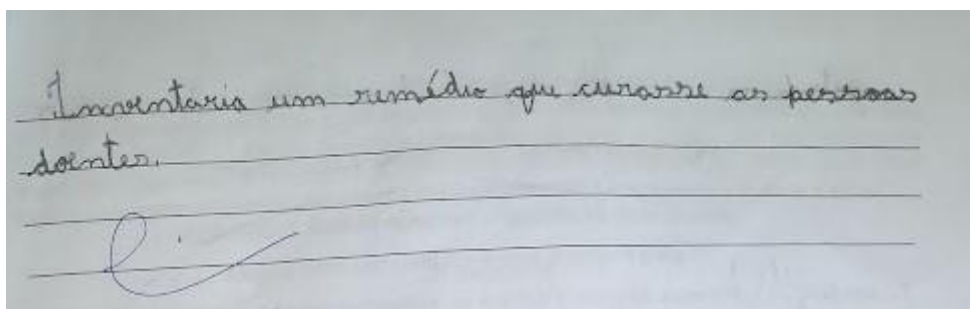 Inventaria um remédio que curasse as pessoas
doentes.